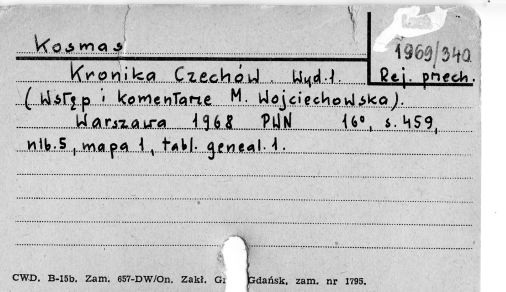 Kosmas
1969/340
Kronika Czechów. Wyd. 1.
Rej. przech.
(Wstęp i komentarze M. Wojciechowska).
Warszawa 1968 PWN 16°, s. 459,
nlb. 5, mapa 1, tabl. geneal. 1.
CWD. B-15b. Zam. 657-DW/On. Zakł. Gdańsk, zam. nr 1795.